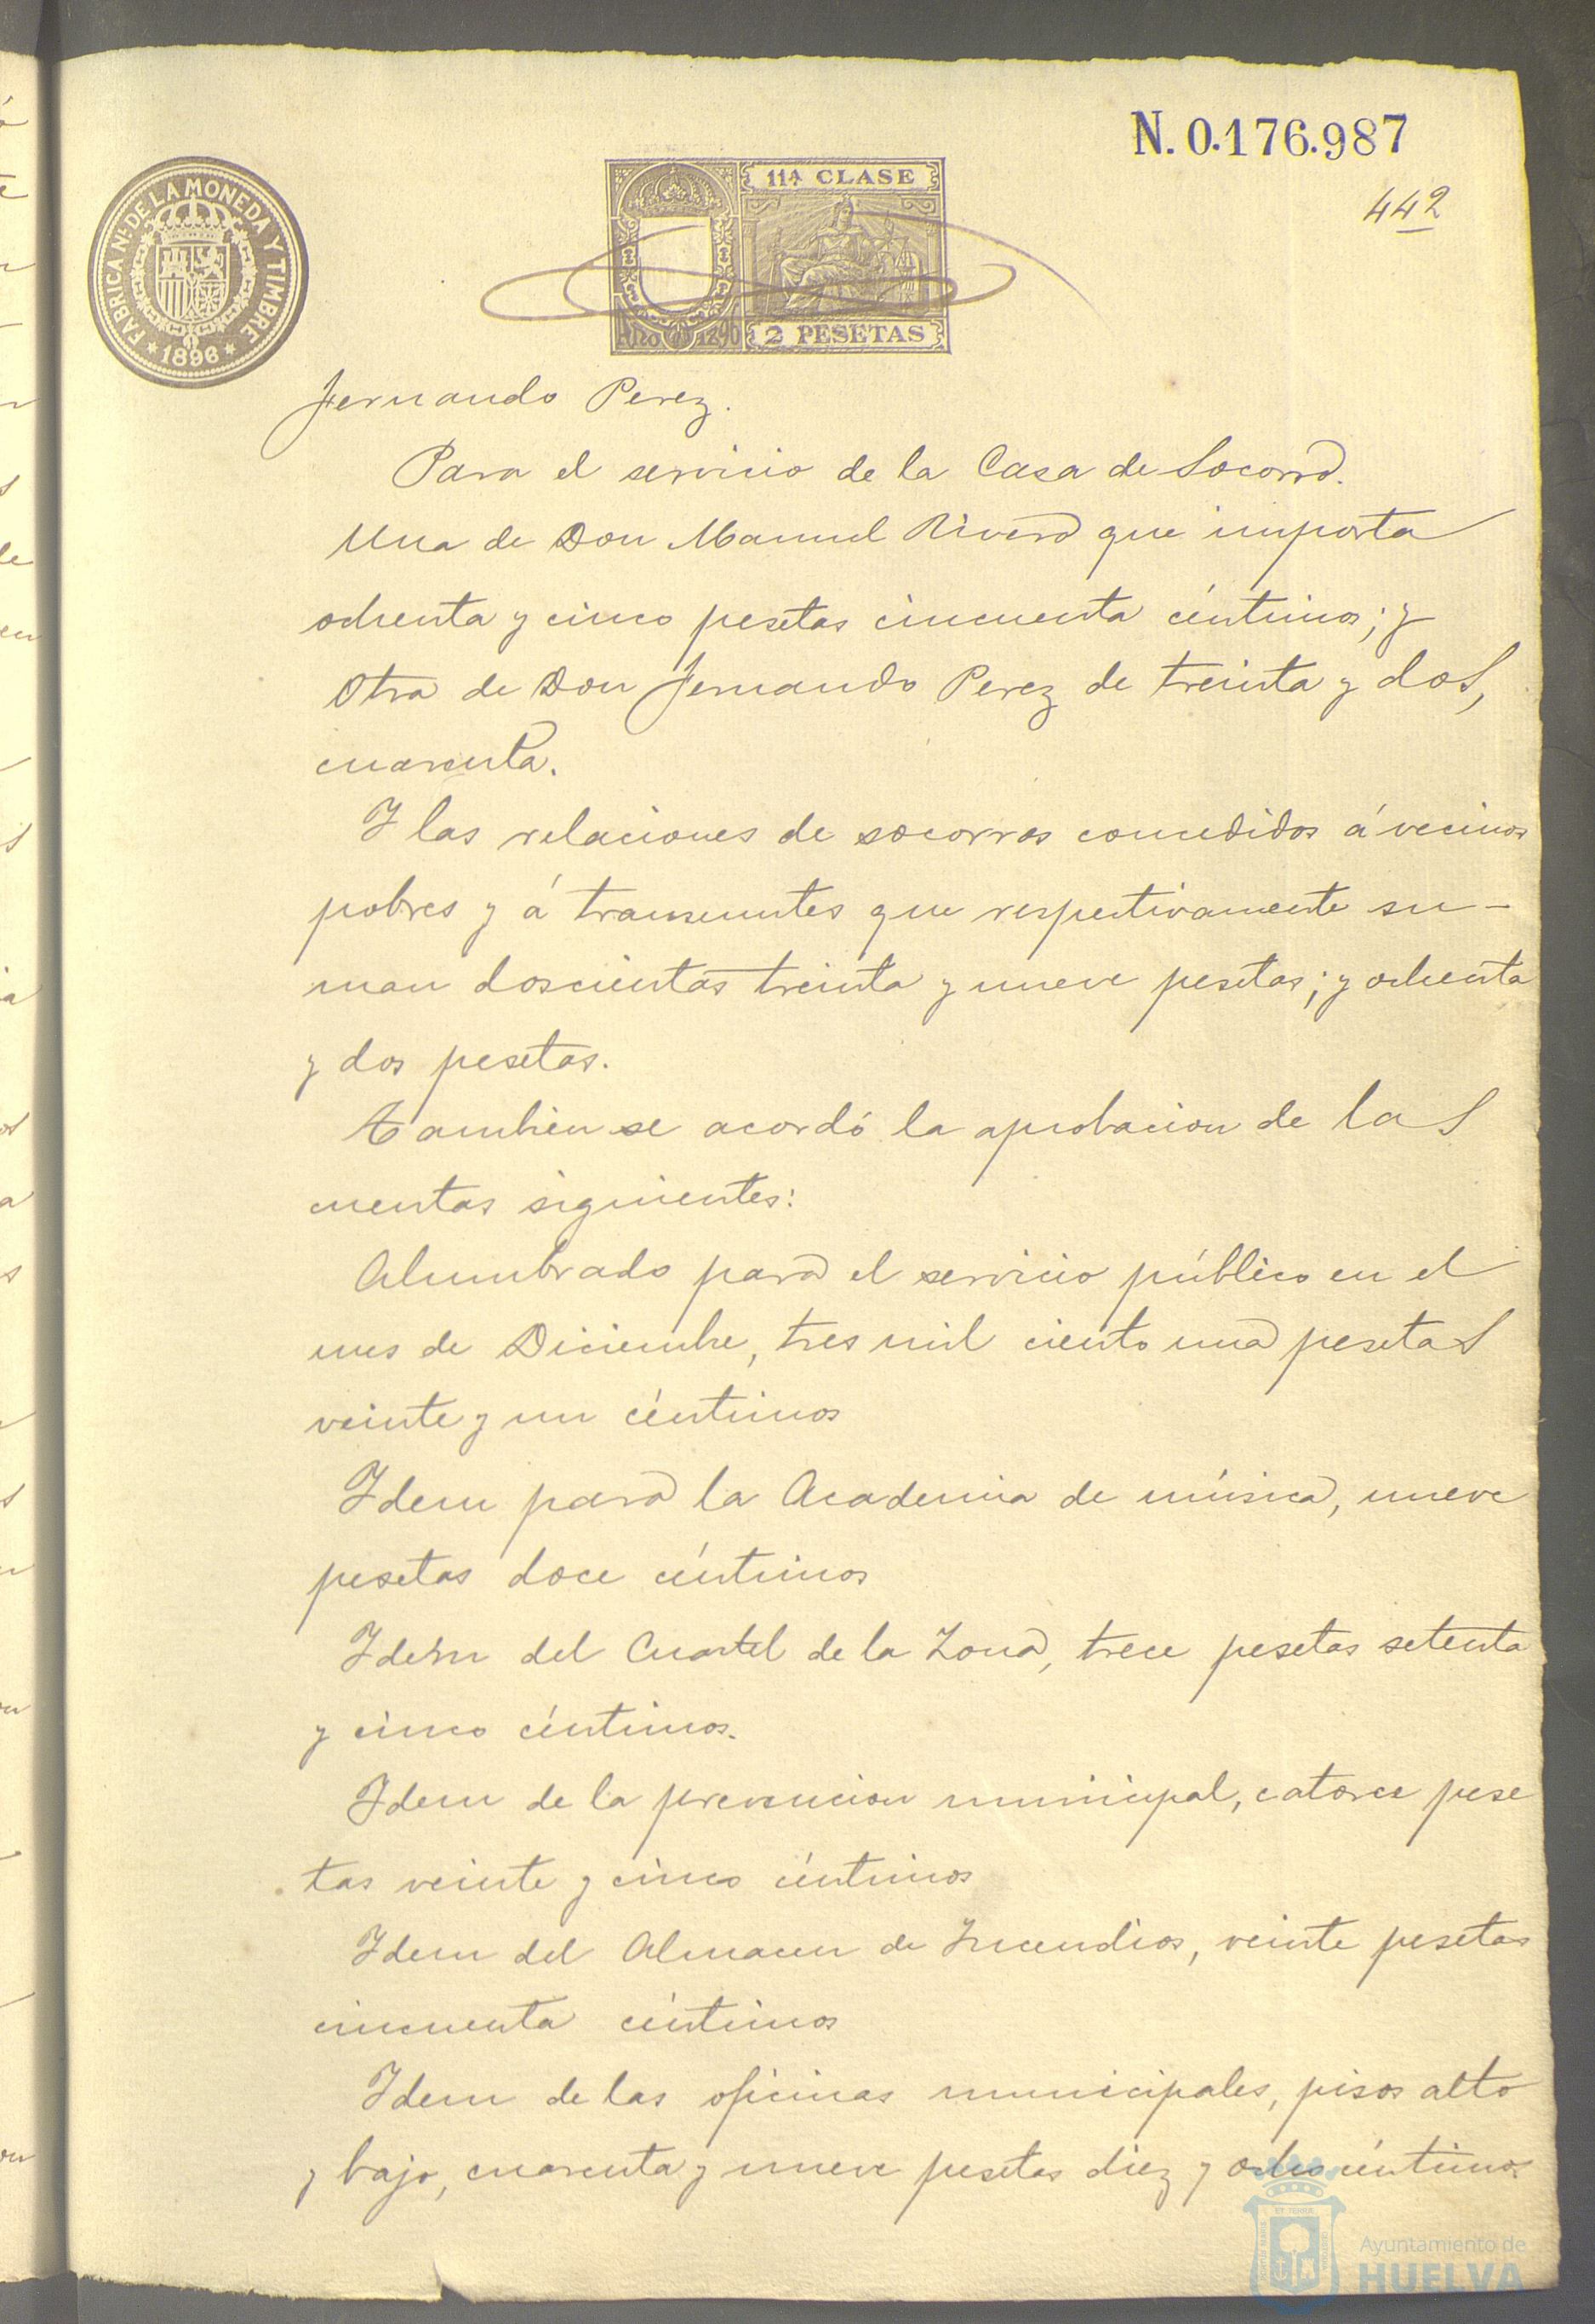 N. 0.176.987
442
FABRICA Nal DE LA MONEDA Y TIMBRE
* 1896 *
11ª CLASE
Año de 1896
2 PESETAS
Fernando Perez.
Para el servicio de la Casa de Socorro.
Una de Don Manuel Rivero que importa
ochenta y cinco pesetas cincuenta céntimos; y
Otra de Don Fernando Perez de treinta y dos,
cuarenta.
Y las relaciones de socorros concedidos á vecinos
pobres y á transeuntes que respectivamente su-
man doscientas treinta y nueve pesetas; y ochenta
y dos pesetas.
Tambien se acordó la aprobacion de las
cuentas siguientes:
Alumbrado para el servicio público en el
mes de Diciembre, tres mil ciento una pesetas
veinte y un céntimos
Idem para la Academia de música, nueve
pesetas doce céntimos
Idem del Cuartel de la Zona, trece pesetas setenta
y cinco céntimos.
Idem de la prevencion municipal, catorce pese
tas veinte y cinco céntimos
Idem del Almacen de Incendios, veinte pesetas
cincuenta céntimos
Idem de las oficinas municipales, pisos alto
y bajo, cuarenta y nueve pesetas diez y ocho céntimos
Ayuntamiento de
HUELVA